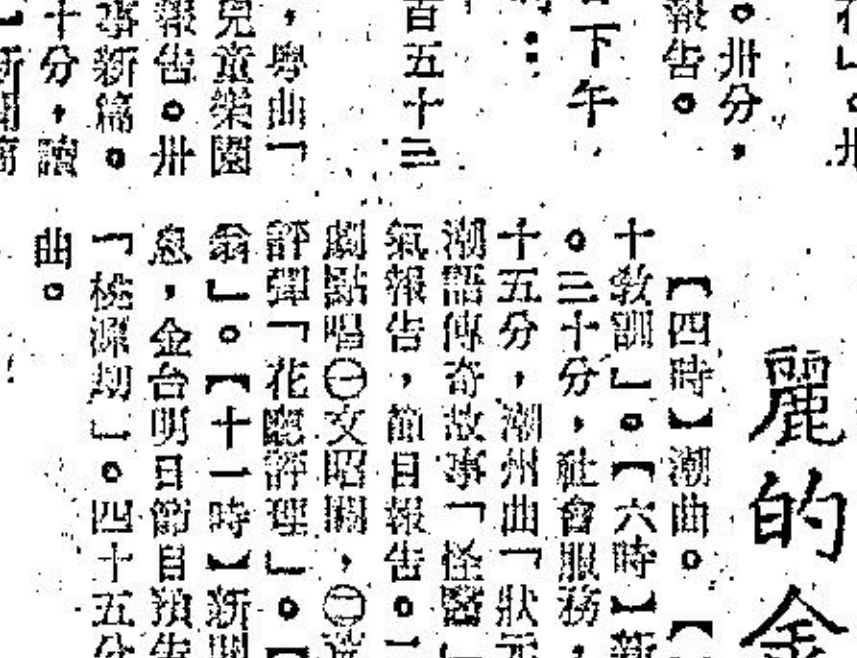 花」。卅
。卅分，
報告。
日下午
百五十三
，粵曲「
兒童樂園
報告。卅
事新篇。
十分，讀
】新聞簡
麗的金
【四時】潮曲。【
十教訓」。【六時】新
。三十分，社會服務，
十五分，潮州曲「狀元
潮語傳奇故事「怪醫」
氣報告，節目報告。二
劇點唱㊀文昭關，㊁
評彈「花廳評理」。【
翁」。【十一時】新聞
息，金台明日節目預告
「桃源刼」。四十五分
曲。